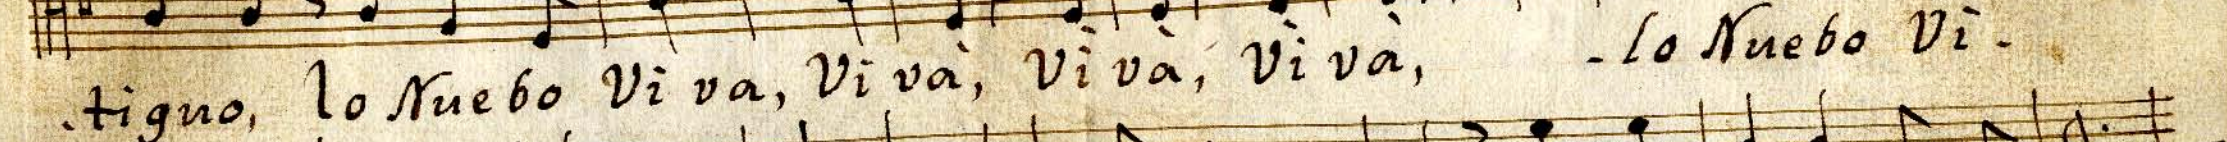 .tiguo, lo Nuebo Vi va, Vi và, Vì và, Vì và, -lo Nuebo Vi-